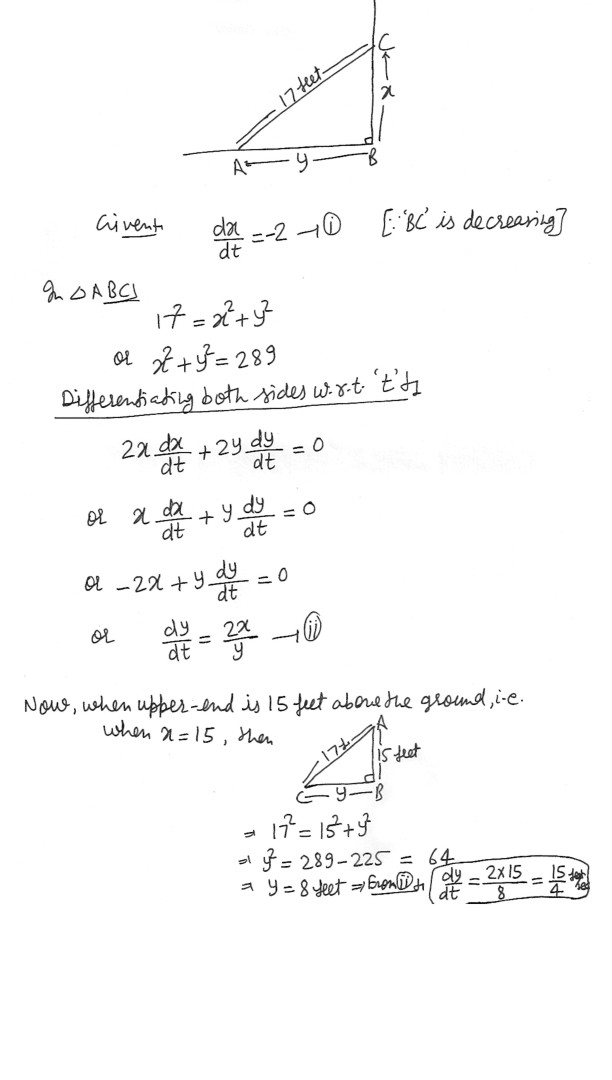 C
17 feet
x
A y B
Given:, dx/dt = -2 → (i) [∵ 'BC' is decreasing]
In △ ABC,
17² = x² + y²
or x² + y² = 289
Differentiating both sides w.r.t. 't',
2x dx/dt + 2y dy/dt = 0
or x dx/dt + y dy/dt = 0
or -2x + y dy/dt = 0
or dy/dt = 2x/y → (ii)
Now, when upper-end is 15 feet above the ground, i.e.
when x = 15, then
A
17
15 feet
C y B
⇒ 17² = 15² + y²
⇒ y² = 289 - 225 = 64
⇒ y = 8 feet ⇒ From (ii), dy/dt = 2×15/8 = 15/4 feet/sec